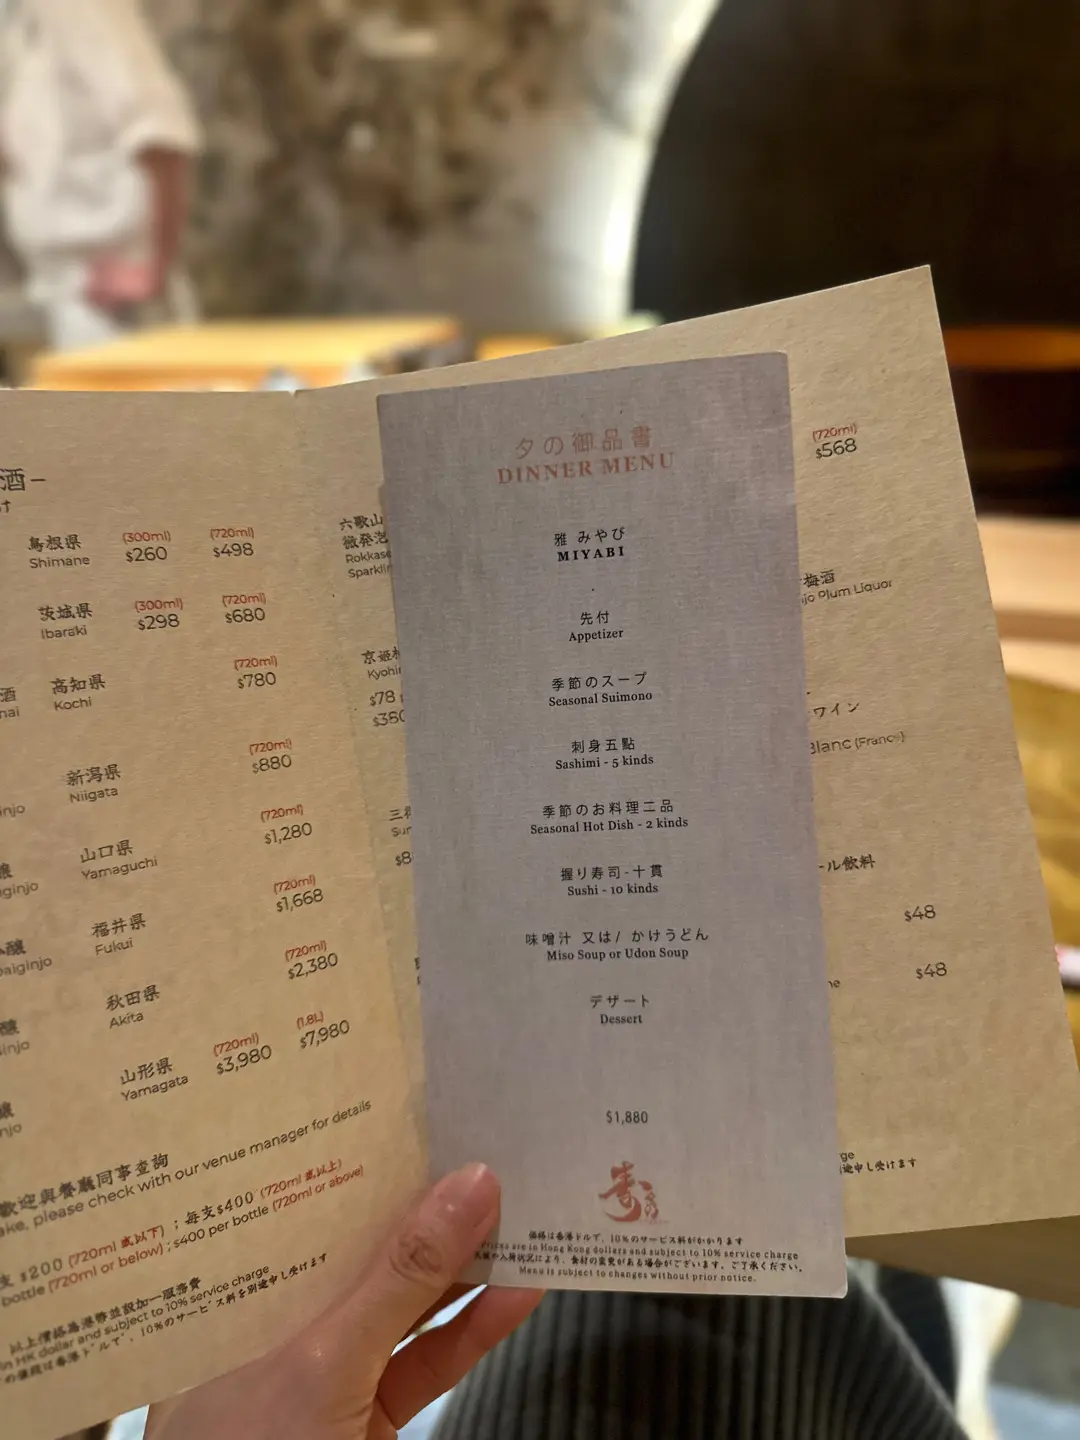 酒-
島根県 (300ml) (720ml)
Shimane $260 $498
茨城県 (300ml) (720ml)
Ibaraki $298 $680
酒 高知県 (720ml)
Kochi $780
新潟県 (720ml)
Niigata $880
山口県 (720ml)
Yamaguchi $1,280
福井県 (720ml)
Fukui $1,668
秋田県 (720ml)
Akita $2,380
山形県 (720ml) (1.8L)
Yamagata $3,980 $7,980
歡迎與餐廳同事查詢
please check with our venue manager for details
$200 (720ml 或以下) ; 每支$400 (720ml 或以上)
bottle (720ml or below) ; $400 per bottle (720ml or above)
以上價格為港幣並設加一服務費
in HK dollar and subject to 10% service charge
は香港ドルで、10%のサービス料を別途申し受けます
六歌山
微発泡
$78
夕の御品書
DINNER MENU
雅 みやび
MIYABI
先付
Appetizer
季節のスープ
Seasonal Suimono
刺身五點
Sashimi - 5 kinds
季節のお料理二品
Seasonal Hot Dish - 2 kinds
握り寿司-十貫
Sushi - 10 kinds
味噌汁 又は/ かけうどん
Miso Soup or Udon Soup
デザート
Dessert
$1,880
価格は香港ドルで、10%のサービス料がかかります
Prices are in Hong Kong dollars and subject to 10% service charge
入荷状況により、食材の変更がある場合がございます。ご了承ください。
Menu is subject to changes without prior notice.
(720ml)
$568
梅酒
Plum Liquor
ワイン
Blanc (France)
ール飲料
$48
$48
途申し受けます